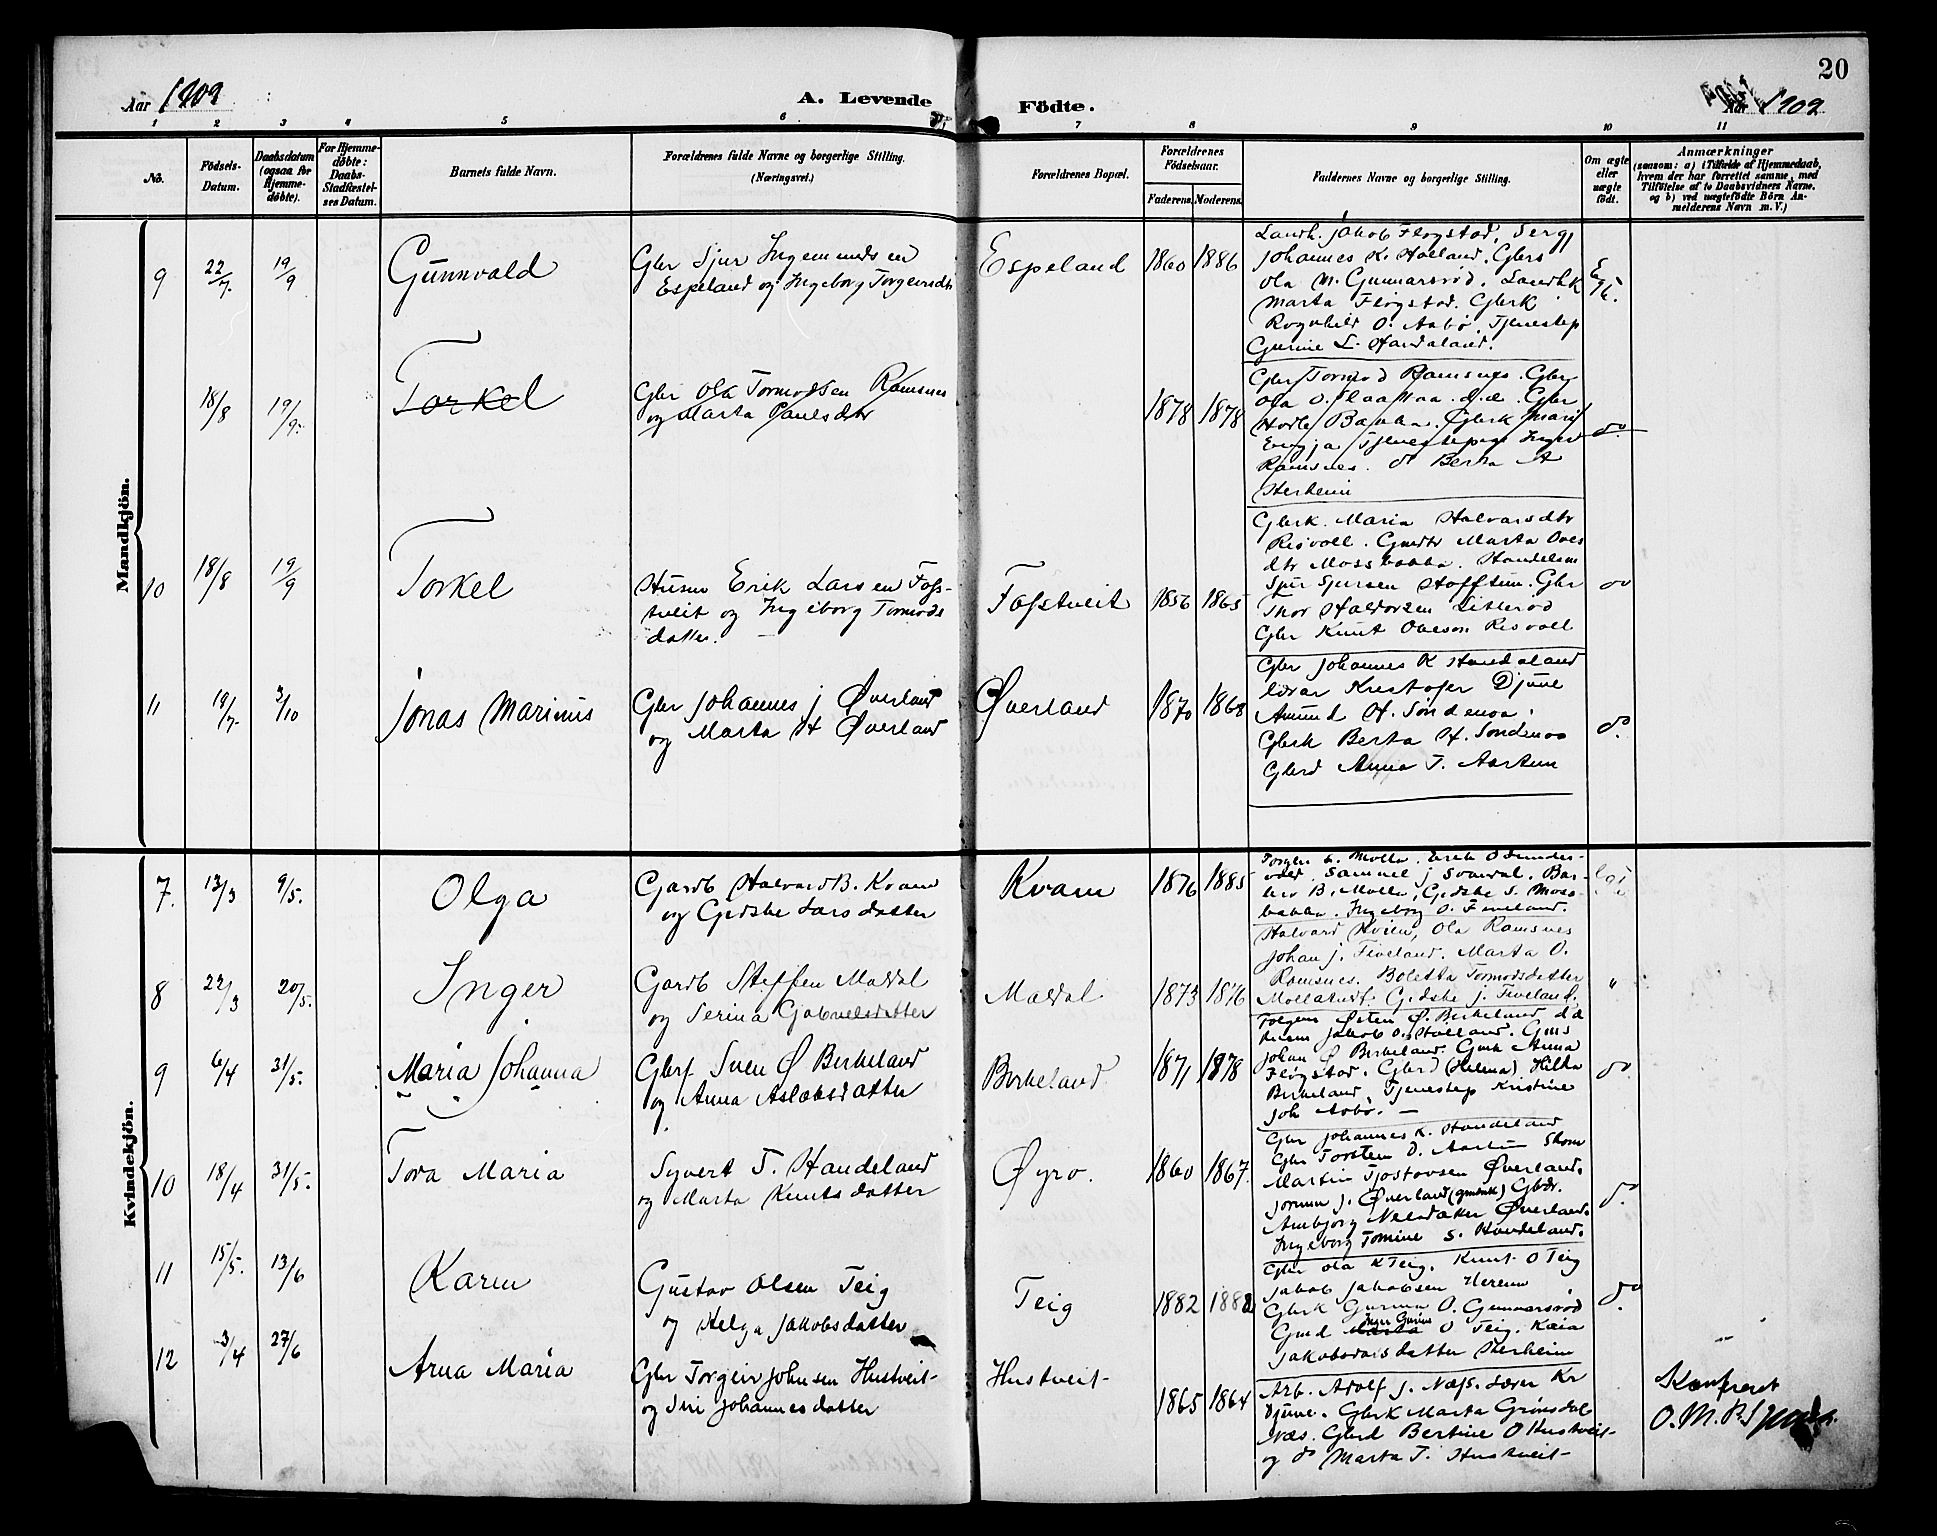 20
Aar 1909
A. Levende
Födte.
Aar 1909
1 2 3 4 5 6 7 8 9 10 11
No.
Födsels-
Datum.
Daabsdatum
(ogsaa for
Hjemme-
døbte).
For Hjemme-
døbte:
Daabs-
Stadfæstel-
ses Datum.
Barnets fulde Navn.
Forældrenes fulde Navne og borgerlige Stilling.
(Næringsvei.)
Forældrenes Bopæl.
Forældrenes
Födselsaar.
Faderens. Moderens.
Faddernes Navne og borgerlige Stilling.
Om ægte
eller
uægte
födt.
Anmærkninger
(saasom: a) i Tilfælde af Hjemmedaab,
hvem der har forrettet samme, med
Tilföielse af to Daabsvidners Navne,
og b) ved uægtefödte Börn An-
melderens Navn m. V.)
Mandkjön.
9 22/7. 19/9 Gunnvald
Gbr Sjur Ingemundsen
Espeland og Ingeborg Torgeirsdtr
Espeland 1860 1886
Landh. Jakob Fløgstad, Serg
Johannes K. Hølland. Gbrs
Ola M. Gunnarsrød. Landhk
Marta Fløgstad. Gbrk
Rognhild O. Aabø. Tjenestep
Gurine L. Handaland.
Egt.
18/8 19/9. Torkel
Gbr Ola Tormodsen Ramsnes
og Marta Paulsdtr
1878 1878
Gbr Tormod Ramsnes. Gbr
Ramsnes. do Berta A
Herheim
do.
10 18/8 19/9 Torkel
Husm Erik Larsen Fos-
tveit og Ingeborg Tormods
datter.
Fosstveit 1856 1865
Gbrk. Maria Halvarsdtr
Risvoll. Gmdtr Marta Oves
dtr Mossbakka. Handelsm
Sjur Sjursen Hofftun. Gbr
Thor Haldorsen Litterød
Gbr Knut Olveson Risvoll
do
11 19/7. 3/10 Jonas Marinus
Gbr Johannes J Øverland
og Marta H Øverland
Øverland 1870 1868
Gbr Johannes K Handeland
lærar Kristofer Djune
Amund H. Søndenaa.
Gbrk Berta H. Søndenaa
Gbrd Anna T. Aartun
do.
Kvindekjön.
7. 13/3 9/5. Olga
Gardb Halvard B. Kvam
og Gjedske Larsdatter
Kvam 1876 1885
bakka. Ingeborg O. Fiveland.
Egt.
8 22/3 20/5. Inger
Gardb Steffen Maldal
og Serina Gabrielsdatter
Maldal 1873 1876
Halvard Hvien, Ola Ramsnes
Johan J. Fiveland. Marta O.
Ramsnes. Boletta Tormodsdatter
Mollatudt. Gjedske J. Fiveland.
"
9 6/4 31/5. Maria Johanna
Gbrf Sven Ø Birkeland
og Anna Aslaksdatter
Birkeland 1871 1878
Johan Ø Birkeland. Gmk Anna
Fløgstad. Gbrd (Helma) Hilka
Birkeland, Tjenestep Kristine
Joh Aabø. —
do.
10 18/4 31/5. Tora Maria
Syvert T. Handeland
og Marta Knutsdatter
Øyro. 1860 1867.
Gbr Johannes K. Handeland
Gbr Torsten D. Aartun Skom
Martin Tjostovsen Øverland.
Jorunn J. Øverland (gmbrk) Gbdr.
Ambjorg Nelsdatter Øverland.
Ingeborg Tomine S. Handeland.
do.
11 15/5. 13/6 Karen
Gustav Olsen Teig
og Helga Jakobsdatter
Teig 1882 1882
Gbr Ola K Teig. Knut O Teig
Jakob Jakobsen Hereim
Gbrk Gurina O. Gunnarsrød
Inger Gurine
Gmd Marta O Teig. Kaia
Jakobsdatter Herheim
do.
12 3/4 27/6 Anna Maria
Gbr Torgeir Johnsen Hustveit
og Siri Johannesdatter
Hustveit 1865 1864
Arb. Adolf J. Næss. Lærer Kr
Djune. Gbrk Marta Grimsdal
Næs. Gbrd Bertine O Hustveit
og do Marta T. Hustveit
Konfereret